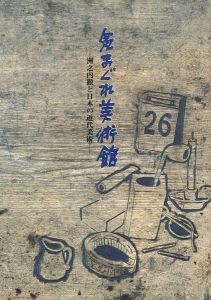 気まぐれ美術館
洲之内徹と日本の近代美術
26